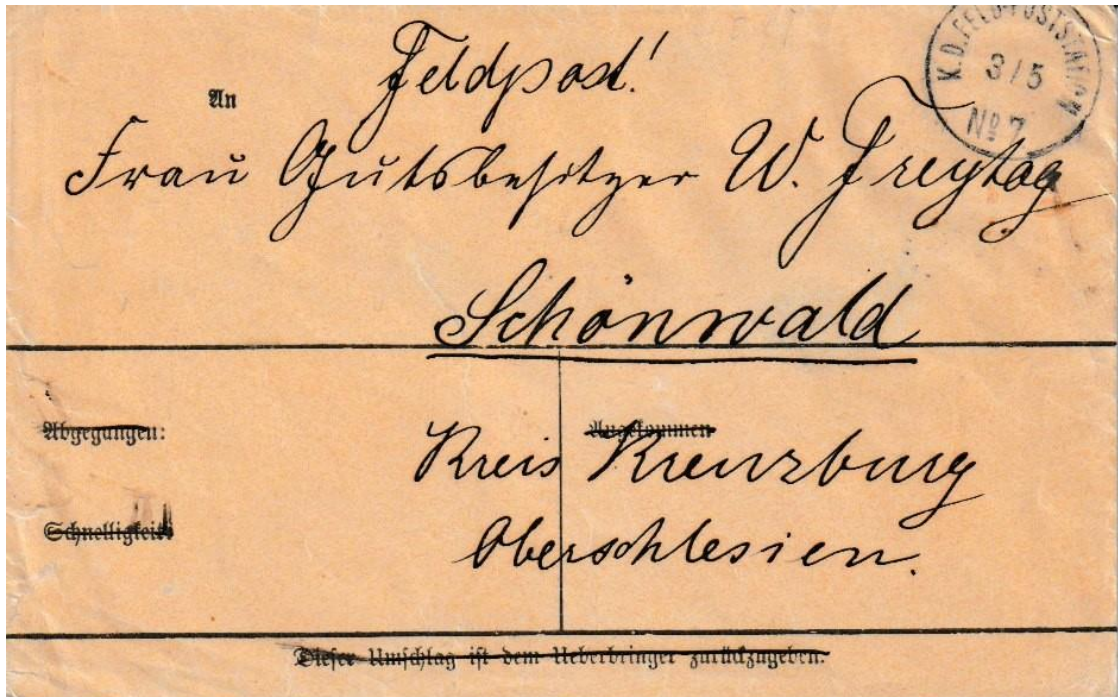 Feldpost!
K.D. FELD-POSTSTATION
3/5
Nº 7
An
Frau Gutsbesitzer W. Freytag
Schönwald
Abgegangen:
Angekommen
Kreis Kreuzburg
Schnelligkeit:
Oberschlesien.
Dieser Umschlag ist dem Ueberbringer zurückzugeben.